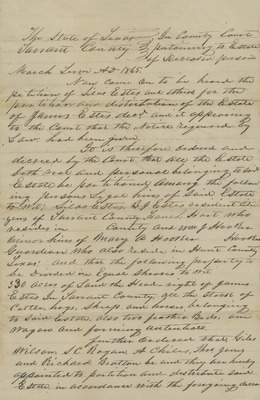 The State of Texas In County Court
Tarrant County pertaining to Estate
of Deceased persons
March Term A.D. 1865.
Now came on to be heard the
petition of Silas Estes and others for the
partition and distribution of the Estate
of James Estes decd. and it appearing
to the Court that the Notice required by
Law had been given
It is therefore ordered and
decreed by the Court that all the Estate
both real and personal belonging to said
Estate be partitioned among the follow
ing persons heirs of said Estate
to wit: Silas Estes B J Estes resident citi
zens of Tarrant County Hart who
resides in County and Wm J Hooker
Minor heirs of Mary A Hooker Hooker
Guardian who also reside in Hunt County
Texas and that the following property to
be Divided in Equal Shares to wit
320 Acres of Land the Head right of James
Estes In Tarrant County, all the Stock of
Cattle, hogs, Sheep, and horses belonging
to said Estate, also two feather Beds, one
Wagon and farming utensils.
further ordered that Giles
Wilson, S.C. A Chiles, Tho
and Richard Bratton be and they are hereby
appointed to partition and distribute said
Estate in accordance with the foregoing decree